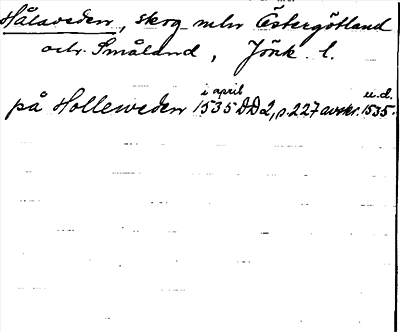 Hålaveden, skog mln Östergötland
och Småland, Jönk. l.
i april u. d.
på Holleweden 1535 DD2, s. 227 avskr. 1535.